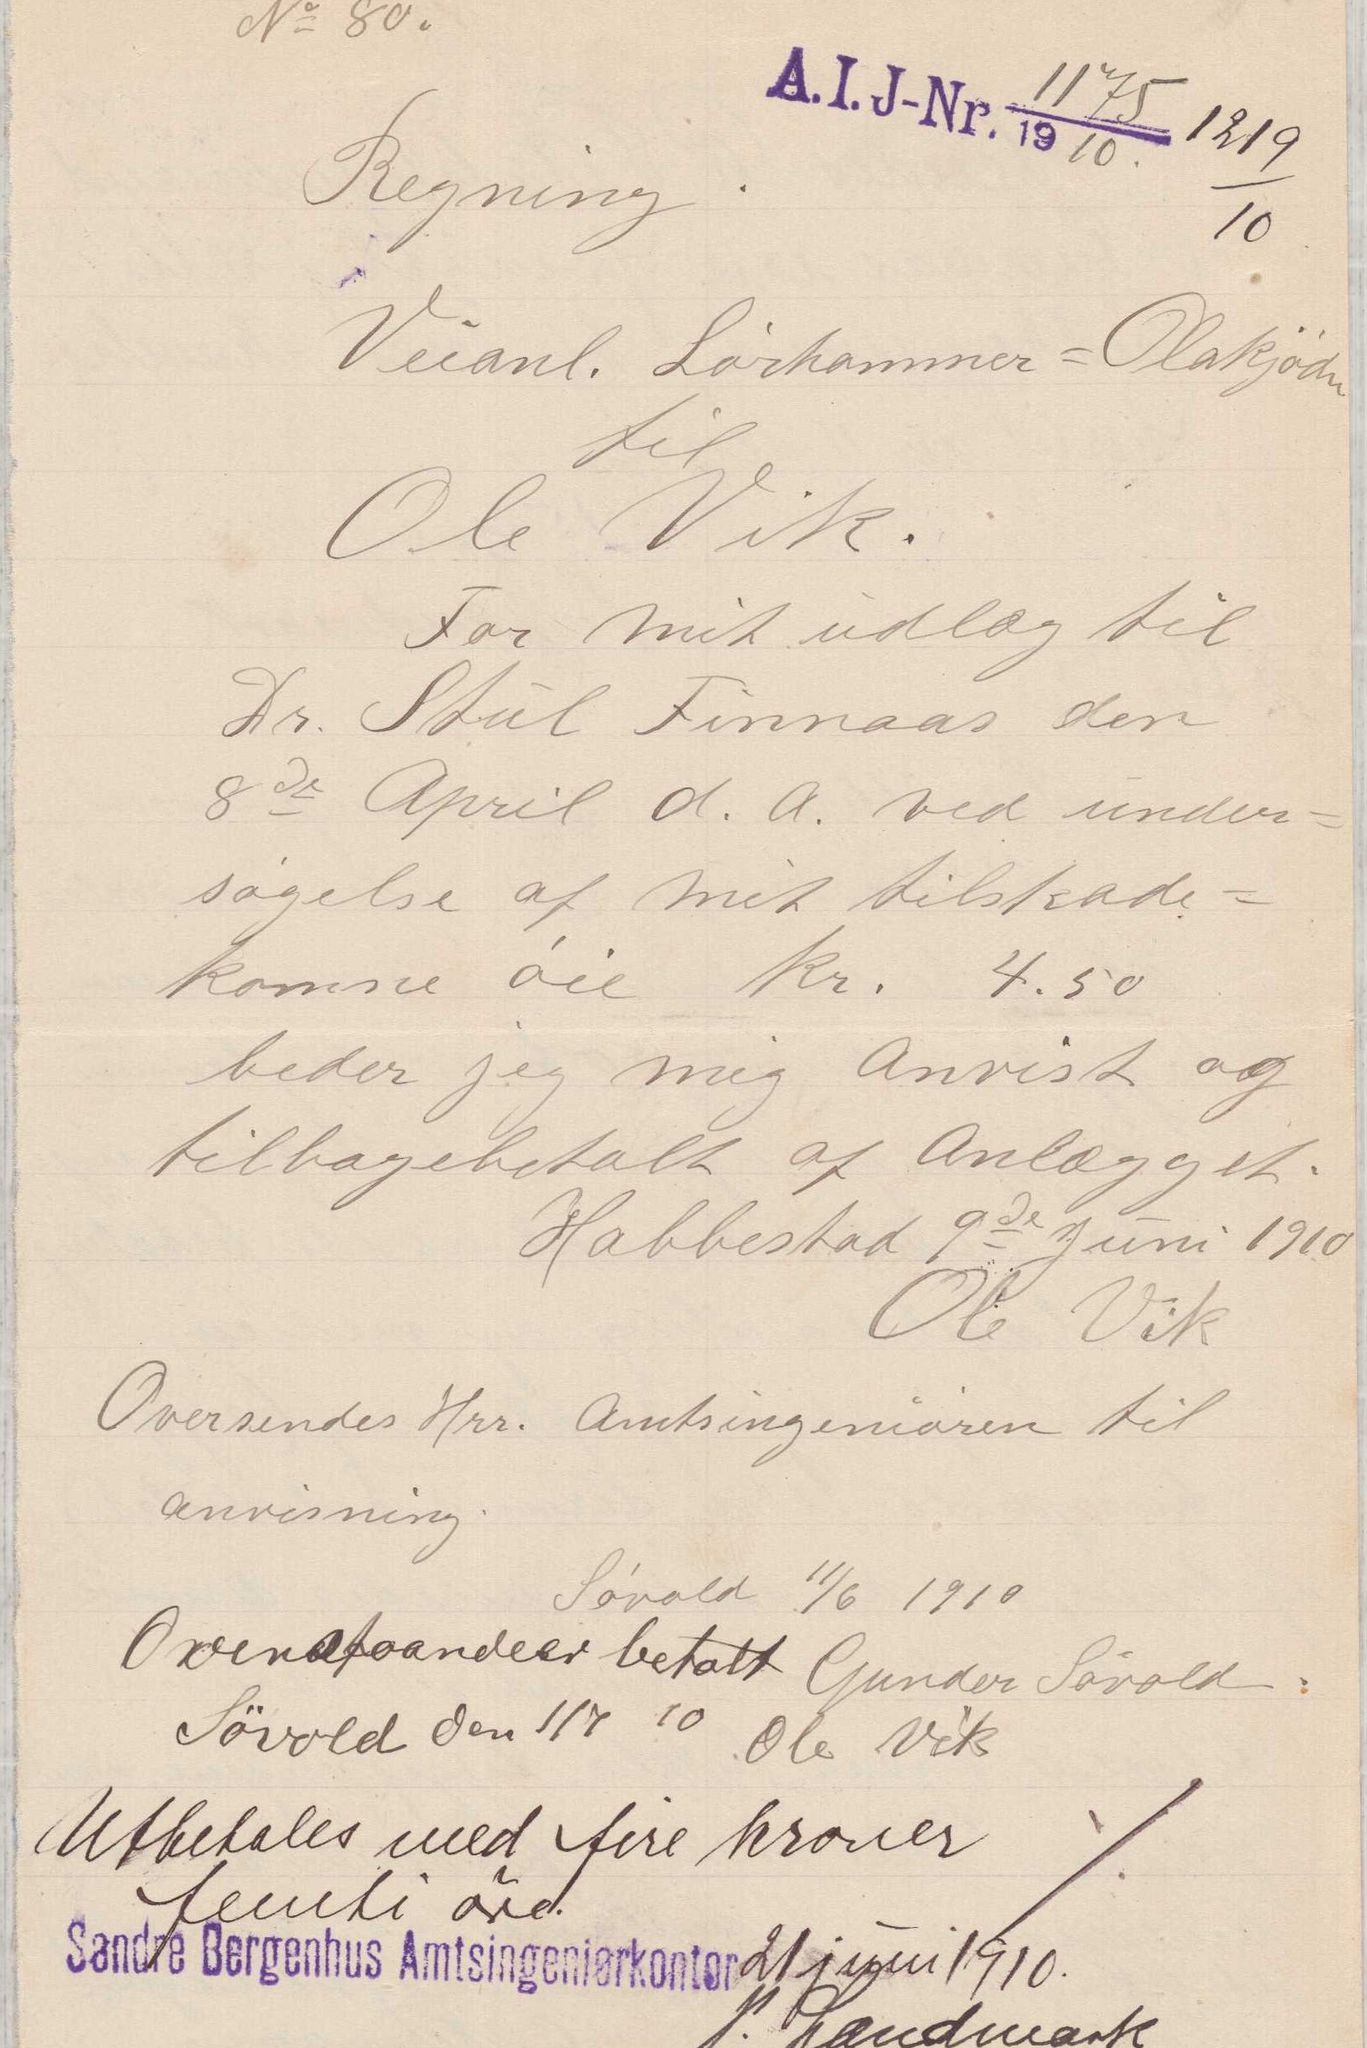 No 80.
A.I.J-Nr. 1175 / 1910. 1219 / 10
Regning.
Veianl. Lörhammer = Olakjödn
til
Ole Vik.
For mit udlæg til
Dr. Stül Finnaas den
8de April d. A. ved under=
søgelse af mit tilskade=
komne óie kr. 4.50
beder jeg mig Anvist og
tilbagebetalt af Anlægget.
Habbestad 9de Juni 1910
Ole Vik
Oversendes Hrr. Amtsingeniören til
anvisning.
Sóvold 11/6 1910
Gunder Sóvold
Ovenstaande er betalt
Sövold den 1/7 10 Ole Vik
Utbetales med fire kroner
femti öre.
Søndre Bergenhus Amtsingeniørkontor 21 juni 1910.
Landmark